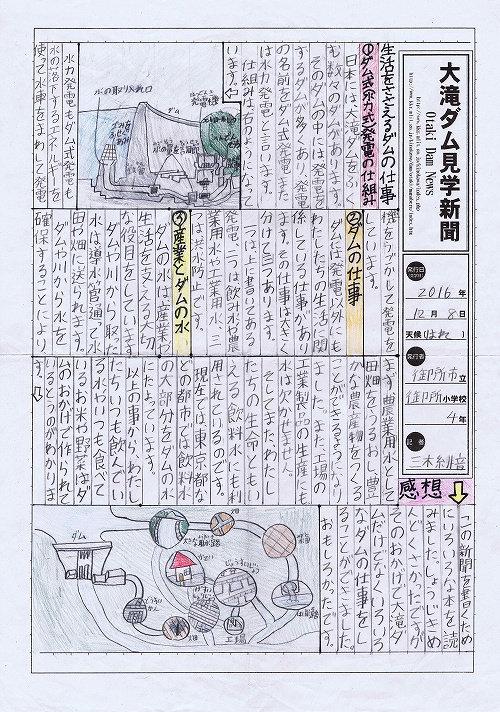 大滝ダム見学新聞
Otaki Dam News
発行日
2016年
12月8日
天候(はれ)
発行者
御所市立
御所小学校
4年
記者
生活をささえるダムの仕事
①ダム式水力式発電の仕組み
日本には、大滝ダムをふ
む数々のダムがあります。
そのダムの中には、発電を
するダムが多くあり、発電
の名前をダム式発電、また
は水力発電と言います。
仕組みは右のようになって
います。
ダム
水の取り入れ口
発電機
水力発電もダム式発電も
水の落下するエネルギーを
使って水車をまわして発電
機をうごかして発電を
しています。
②ダムの仕事
ダムには発電以外にも
わたしたちの生活に関
係している仕事があり
ます。その仕事は大きく
分けて三つあります。
一つは、上に書いてある
発電、二つは飲み水や農
業用水や工業用水、三
つは洪水防止です。
③産業とダムの水
ダムの水は産業や
生活を支える大切
な役目をしています。
ダムや川から取った
水は導水管通て水
田や畑に送られます。
ダムや川から水を
確保することにより
まず農業用水として
田畑をうるおし、豊
かな農産物をつくる
ことができるようになり
ました。また、工場の
工業製品の生産にも
水は欠かせません。
そしてまたわたし
たちの生命ともい
える飲料水にも利
用されているのです。
現在では、東京都な
どの都市では飲料水
の大部分をダムの水
にたよっています。
以上の事から、わたし
たちがいつも飲んでい
る水やいつも食べて
いるお米や野菜はダ
ムのおかげで作られて
いるということがわかりま
す。
ダム
工場
感想
この新聞を書くため
にいろいろな本を読
みました。しょうじきめ
んどくさかったですが
そのおかげで大滝ダ
ムだけでなくいろいろ
なダムの仕事をし
ることができました。
おもしろかったです。